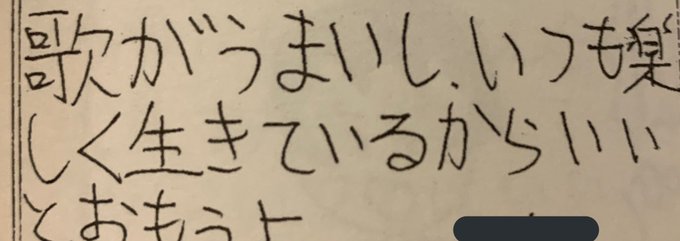 歌がうまいし、いつも楽
しく生きているからいい
とおもうよ